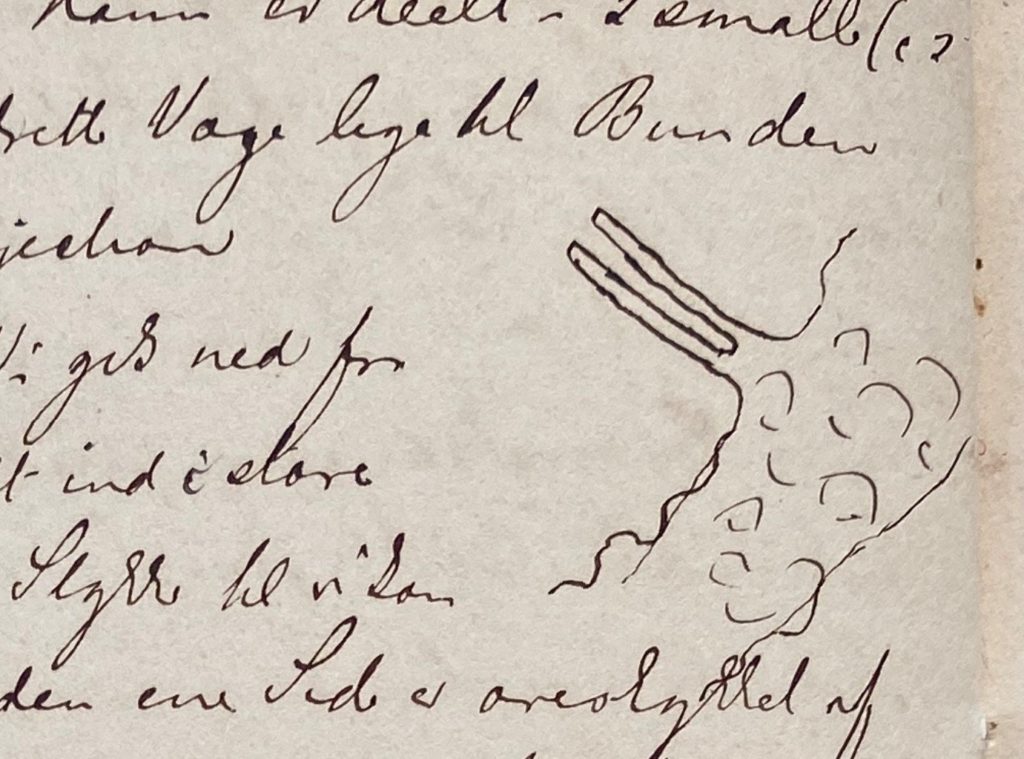 er deelt i 2 smalle
Væge lige til Bunden
jection
Vi gik ned fra
t ind i store
Stykke til vi kom
den ene Side er overskygget af